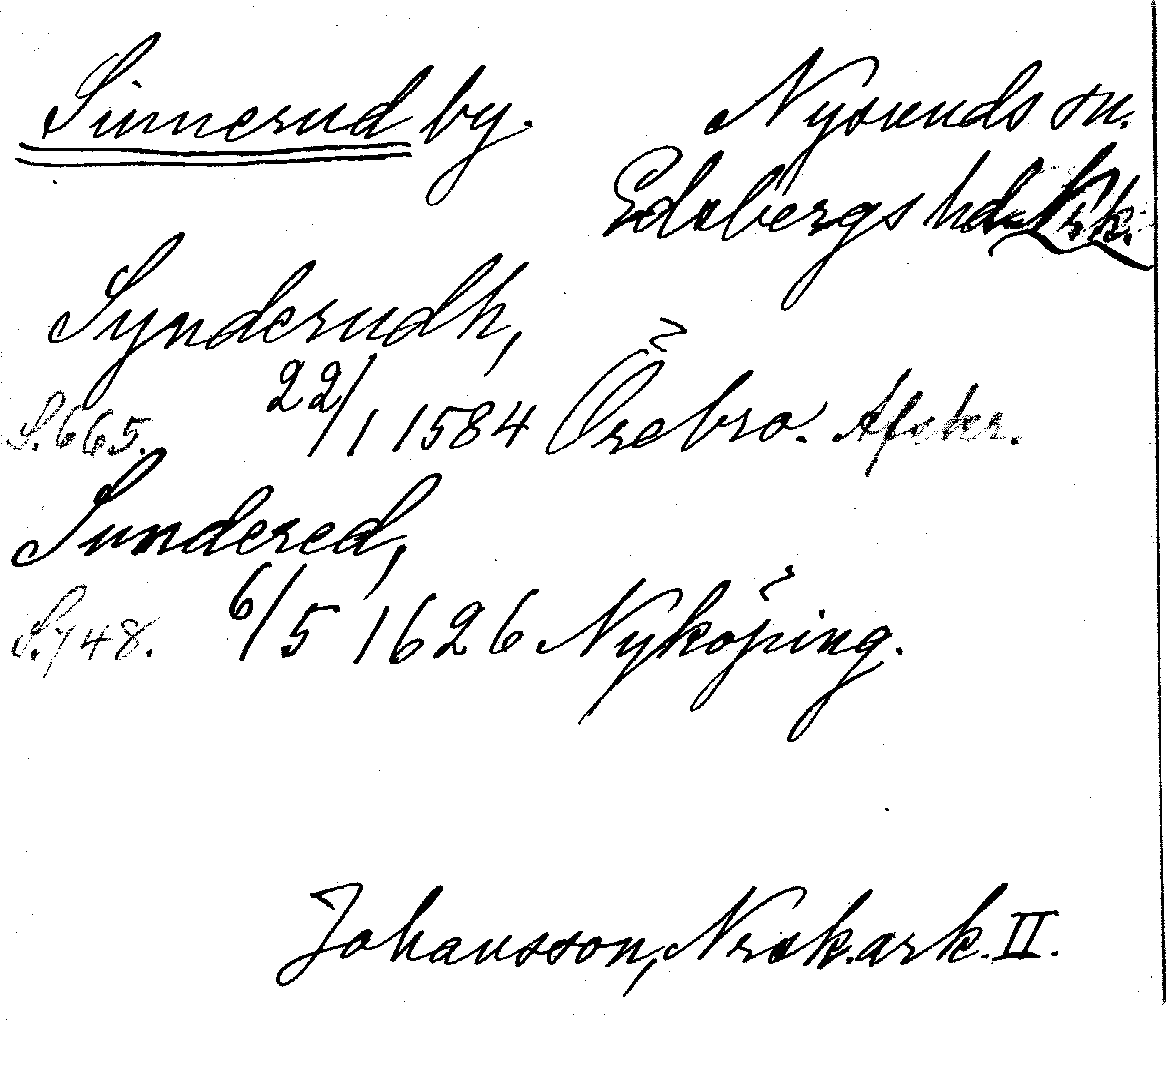 Sinnerud by. Nysunds sn.
Edsbergs hd
Synderudh,
S. 665. 22/1 1584 Örebro. Afskr.
Sundered,
S. 748. 6/5 1626 Nyköping.
Johansson, Nrsk. ark. II.